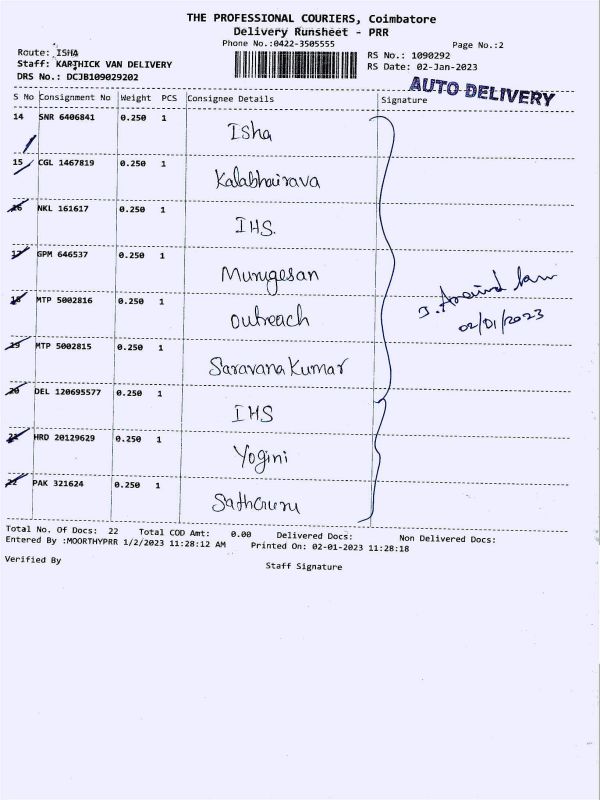 THE PROFESSIONAL COURIERS, Coimbatore
Delivery Runsheet - PRR
Phone No.:0422-3505555
Page No.:2
Route: ISHA
RS No.: 1090292
Staff: KARTHICK VAN DELIVERY
RS Date: 02-Jan-2023
DRS No.: DCJB109029202
AUTO DELIVERY
S No Consignment No Weight PCS Consignee Details Signature
14 SNR 6406841 0.250 1 Isha
15 CGL 1467819 0.250 1 Kalabhairava
16 NKL 161617 0.250 1 IHS.
17 GPM 646537 0.250 1 Murugesan
18 MTP 5002816 0.250 1 outreach
19 MTP 5002815 0.250 1 Saravana Kumar
20 DEL 120695577 0.250 1 IHS
21 HRD 20129629 0.250 1 Yogini
22 PAK 321624 0.250 1
02/01/2023
Total No. Of Docs: 22 Total COD Amt: 0.00 Delivered Docs: Non Delivered Docs:
Entered By :MOORTHYPRR 1/2/2023 11:28:12 AM Printed On: 02-01-2023 11:28:18
Verified By Staff Signature